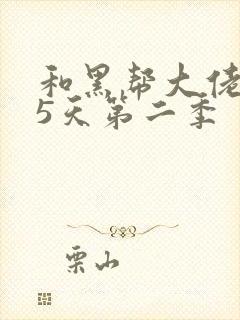 和黑帮大佬
5天第二季
栗山